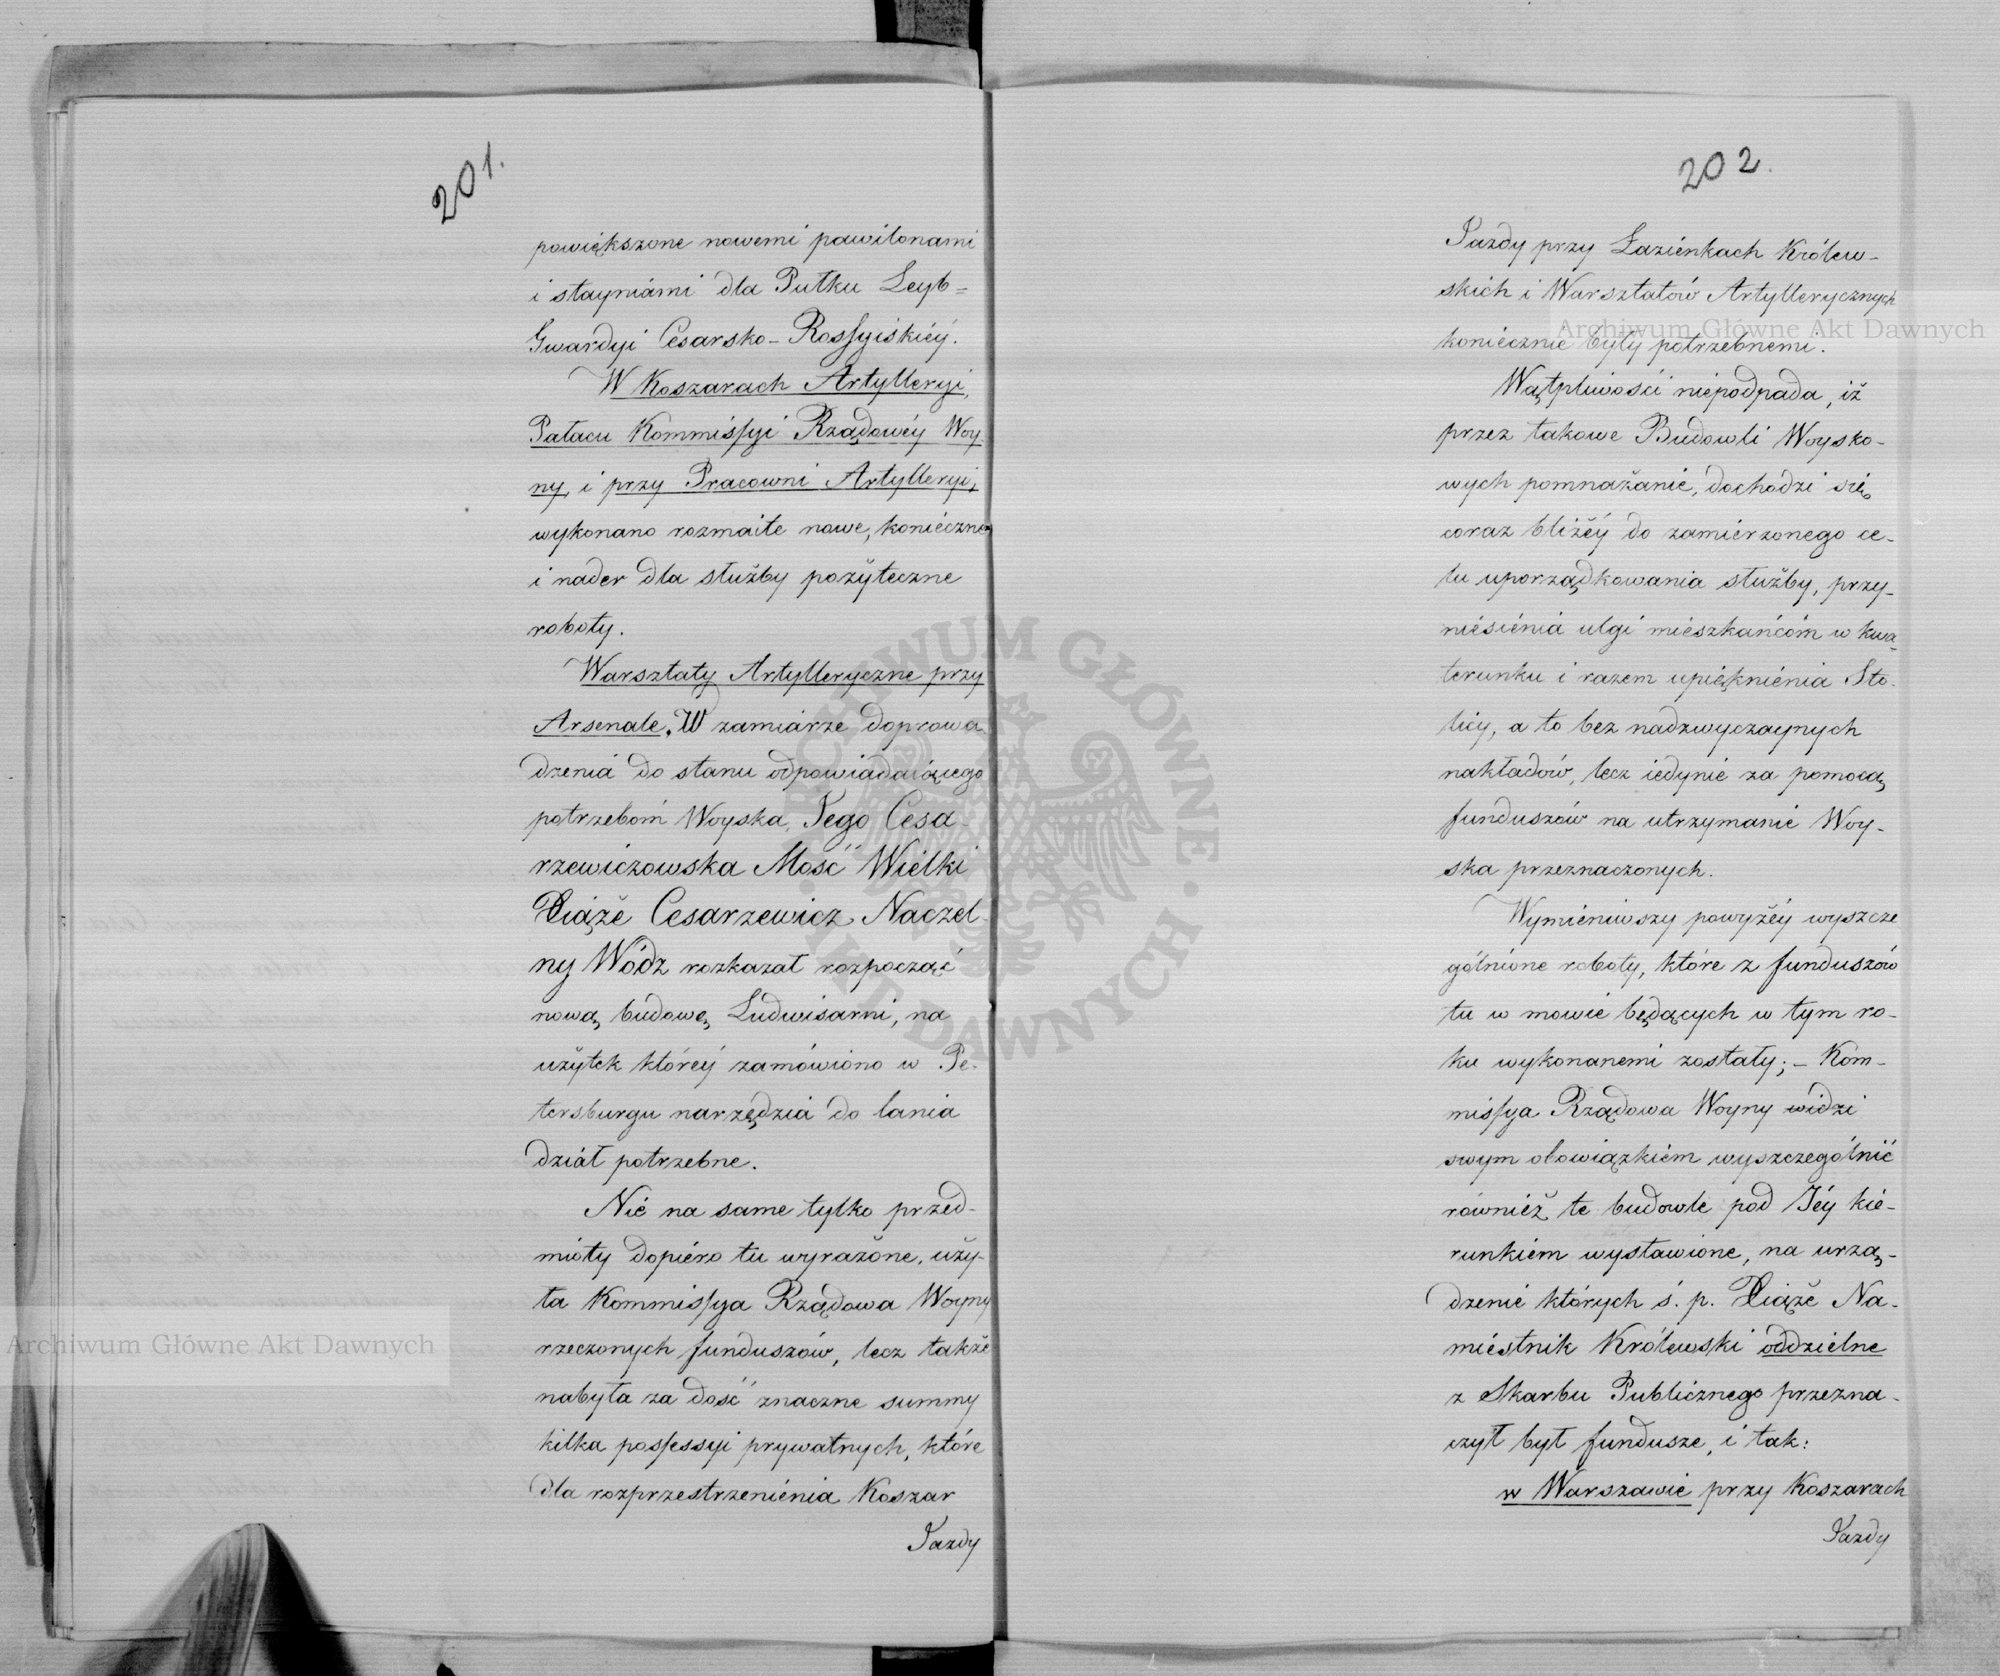 201.
powiększone nowemi pawilonami
i stayniámi dla Pułku Leyb=
Gwardyi Cesarsko-Rossyiskiéy.
W Koszarach Artylleryi,
Pałacu Kommissyi Rządowéy Woy
ny, i przy Pracowni Artylleryi,
wykonano rozmaite nowe, konieczne
i nader dla służby pożyteczne
roboty.
Warsztaty Artylleryczne przy
Arsenale. W zamiárze doprowa
dzenia do stanu odpowiadaiącego
potrzebóm Woyska, Jego Cesa
rzewiczowska Mość Wielki
Xiąże Cesarzewicz Naczel
ny Wódz rozkazał rozpocząć
nową budowę Ludwisarni, na
użytek któréy zamówiono w Pe-
tersburgu narzędzia do lania
dział potrzebne.
Nie na same tylko przed-
mioty dopiéro tu wyrażone, uży-
ła Kommissya Rządowa Woyny
rzeczonych funduszów, lecz także
nabyła za dość znaczne summy
kilka possessyi prywatnych, które
dla rozprzestrzenienia Koszar
Jazdy
202.
Jazdy przy Łazienkach Królew-
skich i Warsztatów Artyllerycznych
koniecznie były potrzebnemi.
Wątpliwości niepodpada, iż
przez takowe Budowli Woysko-
wych pomnażanie, dochodzi się
coraz bliżéy do zamierzonego ce-
lu uporządkowania służby, przy-
niesienia ulgi mieszkańcóm w kwa-
terunku i razem upięknienia Sto-
licy, a to bez nadzwyczaynych
nakładów, lecz iedynie za pomocą
funduszów na utrzymanie Woy-
ska przeznaczonych.
Wymieniwszy powyżéy wyszcze
gólnione roboty, które z funduszów
tu w mowie będących w tym ro-
ku wykonanemi zostały; - Kom-
missya Rządowa Woyny widzi
swym obowiązkiem wyszczególnić
również te budowle pod Jéy kie-
runkiem wystawione, na urzą-
dzenie których ś. p. Xiąże Na-
miéstnik Królewski oddzielne
z Skarbu Publicznego przezna-
czył był fundusze, i tak:
w Warszawie przy Koszarach
Jazdy
Archiwum Główne Akt Dawnych
Archiwum Główne Akt Dawnych
ARCHIWUM GŁÓWNE · AKT DAWNYCH ·